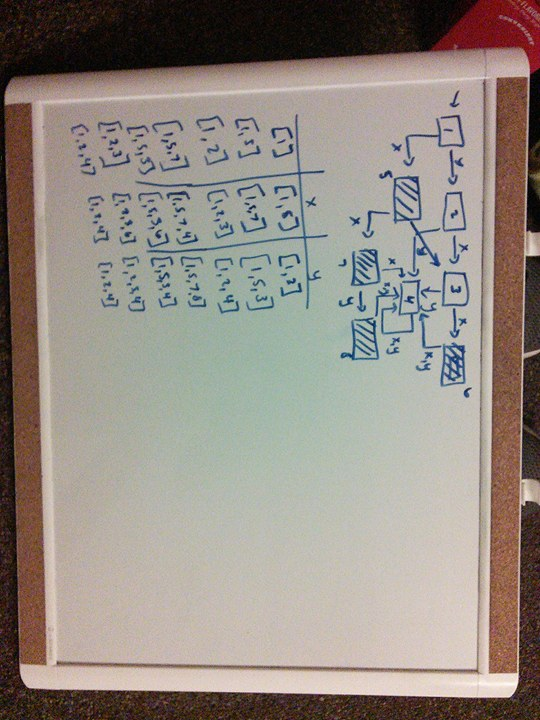 1 x 2 x 3 x 6
x 5 y y x,y
4 x,y
x 7 y 8
x y
[1] [1,5] [1,2]
[1,5] [1,5,7] [1,5,3]
[1,2] [1,2,3] [1,2,4]
[1,5,7] [1,5,7,4] [1,5,7,8]
[1,5,3] [1,5,3,6] [1,5,3,4]
[1,2,3] [1,2,3,6] [1,2,3,4]
[1,2,4] [1,2,4] [1,2,4]